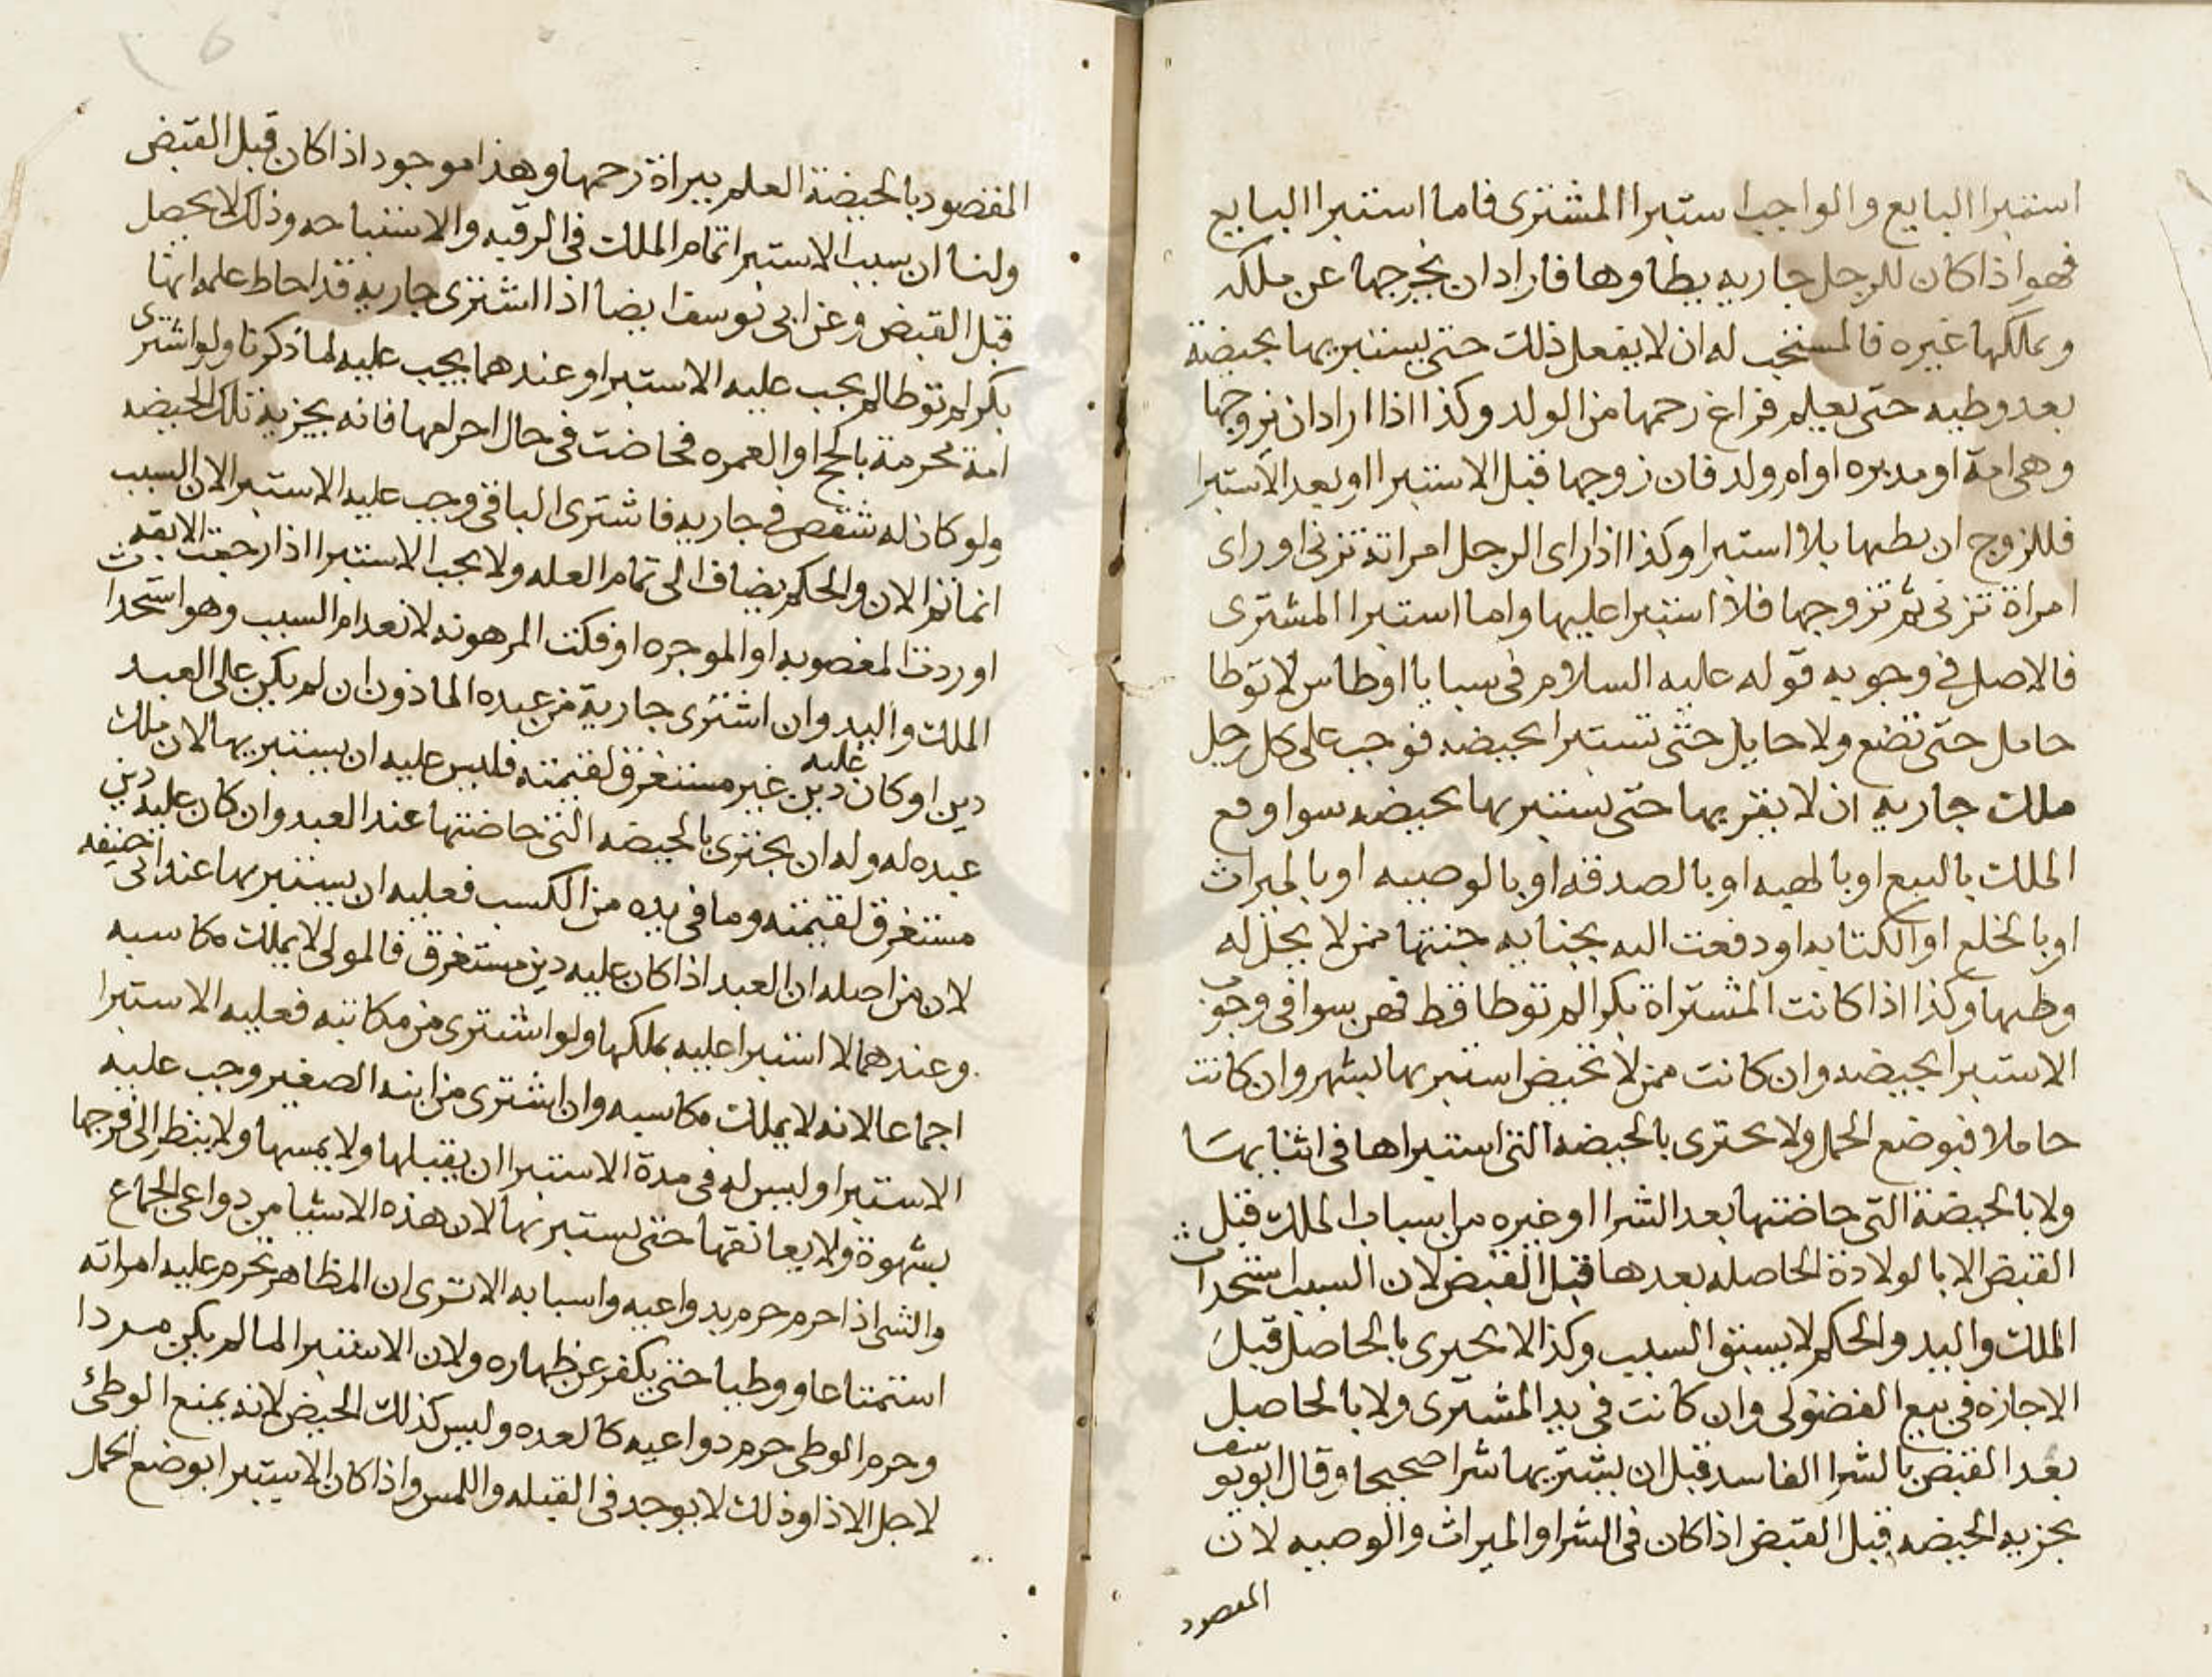 استبرا البايع والواجب استبرا المشترى فاما استبرا البايع
فهو اذا كان للرجل جاريه يطاوها فاراد ان يخرجها عن ملكه
ويملكها غيره فالمستحب له ان لا يفعل ذلك حتى يستبريها بحيضة
بعد وطيه حتى يعلم فراغ رحمها من الولد وكذا اذا اراد ان يزوجها
وهى امة او مدبره او ام ولد فان زوجها قبل الاستبرا او بعد الاستبرا
فللزوج ان يطيها بلا استبرا وكذا اذا راى الرجل امراته تزنى او راى
امراة تزنى ثم تزوجها فلا استبرا عليها واما استبرا المشترى
فالاصل فى وجوبه قوله عليه السلام فى سبايا اوطاس لا توطا
حامل حتى تضع ولا حايل حتى تستبرا بحيضه فوجب على كل رجل
ملك جاريه ان لا يقربها حتى يستبريها بحيضه سوا وقع
الملك بالبيع او بالهبه او بالصدقه او بالوصيه او بالميراث
او بالخلع او الكتابه او دفعت اليه بجنايه جنتها ممن لا يحل له
وطيها وكذا اذا كانت المشتراة بكرا لم توطا قط فهن سوا فى وجوب
الاستبرا بحيضه وان كانت ممن لا تحيض استبريها بشهر وان كانت
حاملا فبوضع الحمل ولا يجتزى بالحيضه التى استبراها فى اثنايها
ولا بالحيضة التى حاضتها بعد الشرا او غيره من اسباب الملك قبل
القبض الا بالولادة الحاصله بعدها قبل القبض لان السبب استحداث
الملك واليد والحكم لا يسبق السبب وكذا لا يجتزى بالحاصل قبل
الاجازه فى بيع الفضولى وان كانت فى يد المشترى ولا بالحاصل
بعد القبض بالشرا الفاسد قبل ان يشتريها شرا صحيحا وقال ابو يوسف
يجزيه الحيضه قبل القبض اذا كان فى الشرا والميراث والوصيه لان
المقصود
المقصود بالحيضة العلم ببراة رحمها وهذا موجود اذا كان قبل القبض
ولنا ان سبب الاستبرا تمام الملك فى الرقبه والاستباحه وذلك لا يحصل
قبل القبض وعن ابى يوسف ايضا اذا اشترى جارية قد احاط علمه انها
بكرا لم توطا لم يجب عليه الاستبرا وعندهما يجب عليه لما ذكرنا ولو اشترى
امة محرمة بالحج او العمره فحاضت فى حال احرامها فانه يجزيه تلك الحيضه
ولو كان له شقص فى جاريه فاشترى الباقى وجب عليه الاستبرا لان السبب
انما تم الان والحكم يضاف الى تمام العله ولا يجب الاستبرا اذا رجعت الابقه
او ردت المغصوبه او الموجره او فكت المرهونه لانعدام السبب وهو استحداث
الملك واليد وان اشترى جارية من عبده الماذون ان لم يكن على العبد
دين او كان عليه دين غير مستغرق لقيمته فليس عليه ان يستبريها لان ملك
عبده له وله ان يجتزى بالحيضه التى حاضتها عند العبد وان كان عليه دين
مستغرق لقيمته وما فى يده من الكسب فعليه ان يستبريها عند ابى حنيفه
لان من اصله ان العبد اذا كان عليه دين مستغرق فالمولى لا يملك مكاسبه
وعندهما لا استبرا عليه بملكها ولو اشترى من مكاتبه فعليه الاستبرا
اجماعا لانه لا يملك مكاسبه وان اشترى من ابنه الصغير وجب عليه
الاستبرا وليس له فى مدة الاستبرا ان يقبلها ولا يمسها ولا ينظر الى فرجها
بشهوة ولا يعانقها حتى يستبريها لان هذه الاشيا من دواعى الجماع
والشى اذا حرم حرم بدواعيه واسبابه الا ترى ان المظاهر تحرم عليه امراته
استمتاعا ووطيا حتى يكفر عن ظهاره ولان الاستبرا لما لم يكن
وحرم الوطى حرم دواعيه كالعده وليس كذلك الحيض لانه يمنع الوطئ
لاجل الاذا وذلك لا يوجد فى القبله واللمس واذا كان الاستبرا بوضع الحمل